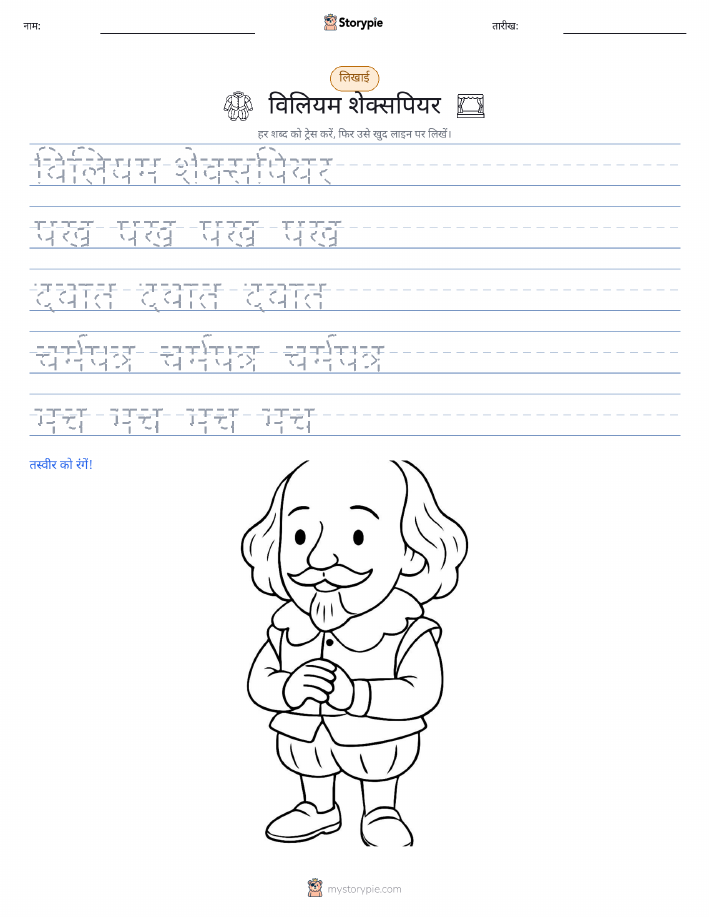 नाम:
Storypie
तारीख:
लिखाई
विलियम शेक्सपियर
हर शब्द को ट्रेस करें, फिर उसे खुद लाइन पर लिखें।
विलियम शेक्सपियर
पंख पंख पंख पंख
दवात दवात दवात
चर्मपत्र चर्मपत्र चर्मपत्र
मंच मंच मंच मंच
तस्वीर को रंगें!
mystorypie.com